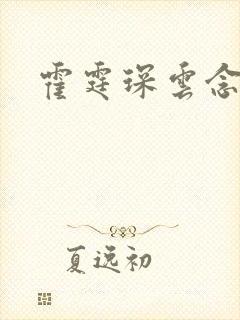 霍霆琛雲念
夏逸初